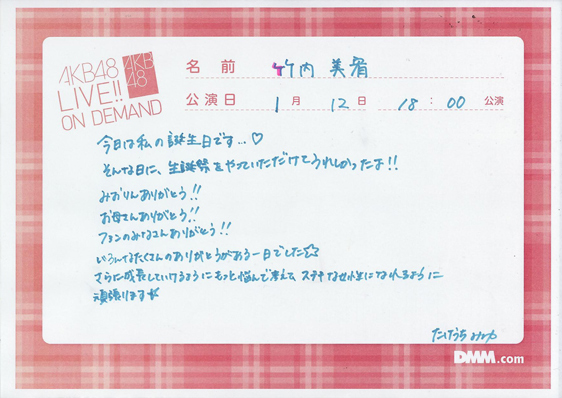 AKB48
LIVE!!
ON DEMAND
AKB
48
名前 竹内 美宥
公演日 1月 12日 18:00 公演
今日は私の誕生日です…♡
そんな日に、生誕祭をやっていただけてうれしかったよ!!
みおりんありがとう!!
お母さんありがとう!!
ファンのみなさんありがとう!!
いろんなたくさんのありがとうがある一日でした☆
さらに成長していけるようにもっと悩んで考えて、ステキな女性になれるように
頑張ります☆
たけうち みゆ
DMM.com